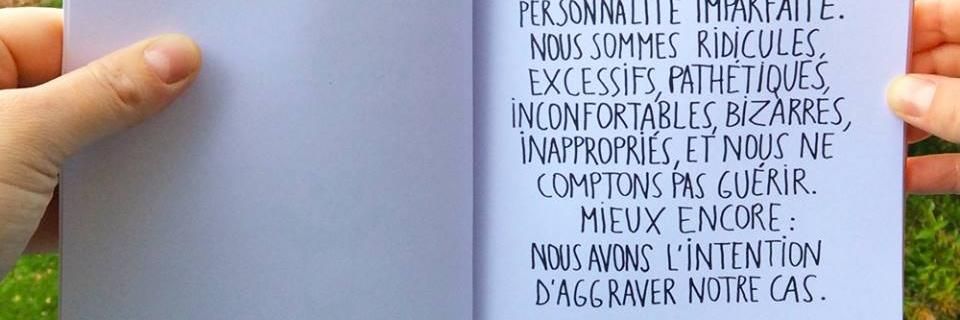 PERSONNALITÉ IMPARFAITE.
NOUS SOMMES RIDICULES,
EXCESSIFS, PATHÉTIQUES,
INCONFORTABLES, BIZARRES,
INAPPROPRIÉS, ET NOUS NE
COMPTONS PAS GUÉRIR.
MIEUX ENCORE :
NOUS AVONS L'INTENTION
D'AGGRAVER NOTRE CAS.